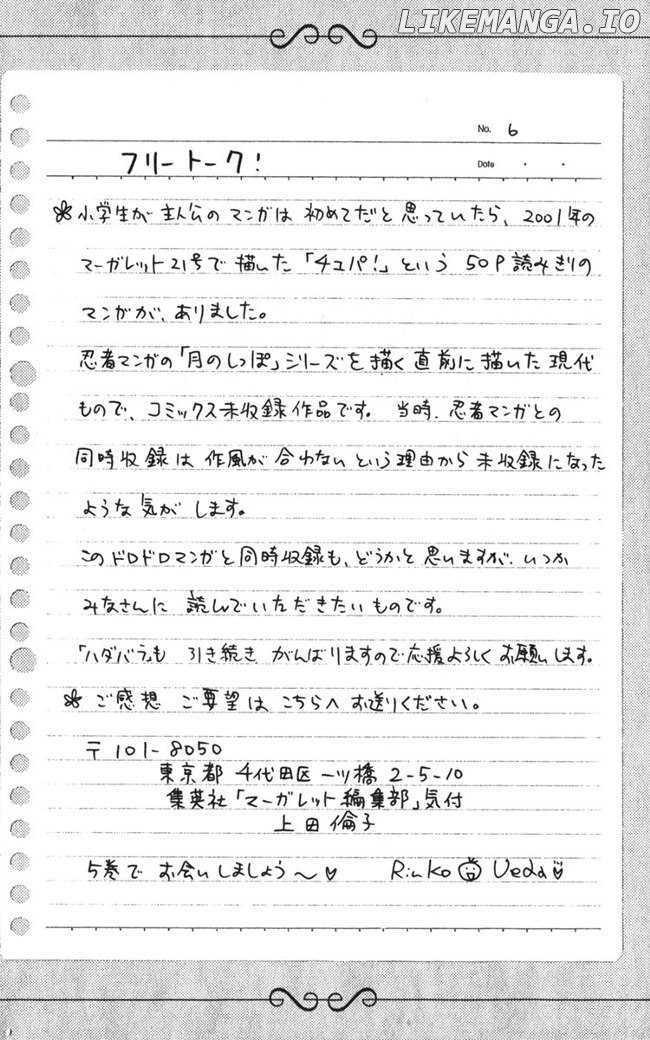 LIKEMANGA.IO
No. 6
フリートーク!
Date ・ ・
✽小学生が主人公のマンガは初めてだと思っていたら、2001年の
マーガレット21号で描いた「チュパ!」という50P読みきりの
マンガが、ありました。
忍者マンガの「月のしっぽ」シリーズを描く直前に描いた現代
もので、コミックス未収録作品です。当時、忍者マンガとの
同時収録は作風が合わないという理由から未収録になった
ような気がします。
このドロドロマンガと同時収録も、どうかと思いますが、いつか
みなさんに読んでいただきたいものです。
「ハダバラ」も引き続きがんばりますので応援よろしくお願いします。
✽ご感想ご要望は、こちらへお送りください。
〒101-8050
東京都千代田区一ツ橋2-5-10
集英社「マーガレット編集部」気付
上田倫子
5巻でお会いしましょう〜♡ Rinko Ueda♡